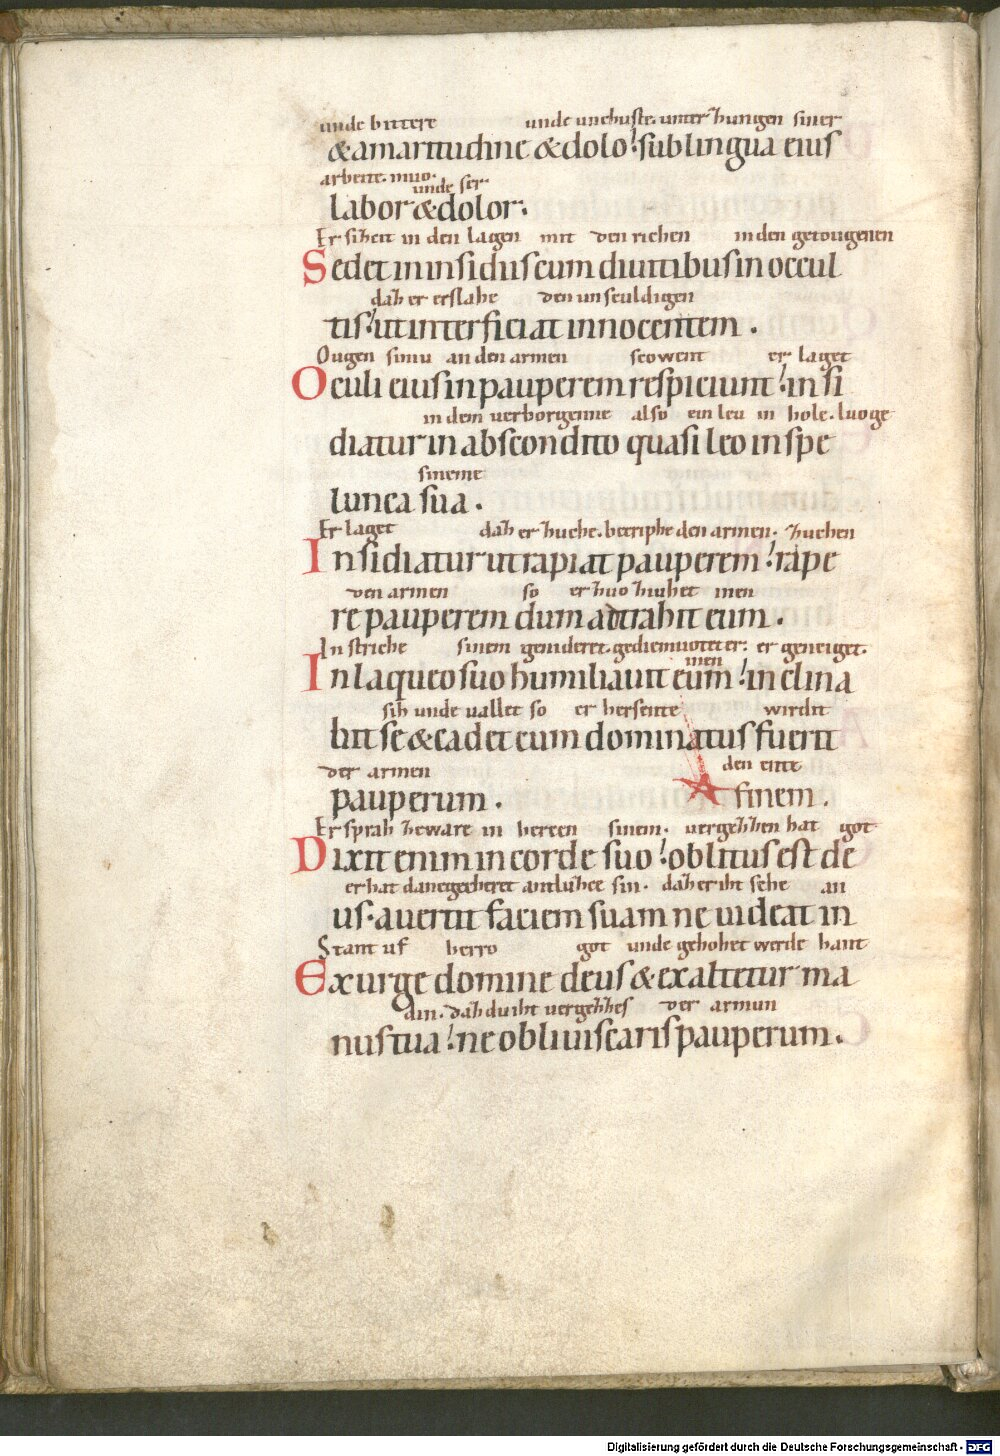 unde bittere unde unchuste. unter zungen siner
&amaritudine &dolo: sub lingua eius
arbeite. muo. unde ser.
labor &dolor.
Er sihcit in den lagen mit den richen in den getougenen
Sedet in insidiis cum diuitibus in occul
daz er erslahe den unsculdigen
tis: ut interficiat innocentem.
Ougen siniu an den armen scowent er laget
Oculi eius in pauperem respiciunt: insi
in dem verborgenne also ein leu in hole. luoge
diatur in abscondito quasi leo in spe
sineme
lunca sua.
Er laget daz er zuche. begriphe den armen. zuchen
Insidiatur ut rapiat pauperem: rape
den armen so er zuo ziuhet inen
re pauperem dum adtrahit eum.
In striche sinem genideret. gediemuotet er. inen er geneiget.
In laqueo suo humiliauit eum: inclina
sih unde uallet so er hersente wirdit
bit se &cadet cum dominatus fuerit
der armen den ente
pauperum. finem.
Er sprah zeware in hercen sinem. vergezzen hat got
Dixit enim in corde suo: oblitus est de
er hat danegecheret antluzce sin. daz er iht sehe an
us. auertit faciem suam ne uideat in
Stant uf herro got unde gehohet werde hant
Exurge domine deus &exaltetur ma
din. daz du iht vergezzes der armun
nus tua: ne obliuiscaris pauperum.
Digitalisierung gefördert durch die Deutsche Forschungsgemeinschaft - DFG